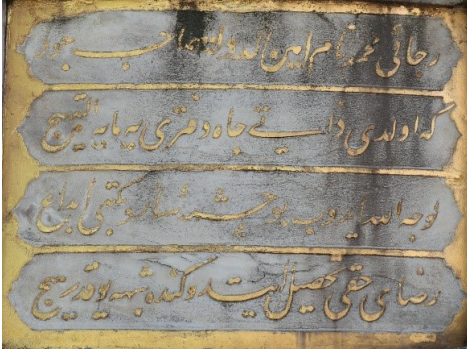 رجائی محمد نام امین الدوله صاحب جود
که اولدی ذاتی جاه دفتری یه مایه الترجیح
لوجه الله ایدوب بو چشمه و مکتبی ابداع
رضای حقی تحصیل ایتدوکنده شبهه یوقدر هیچ